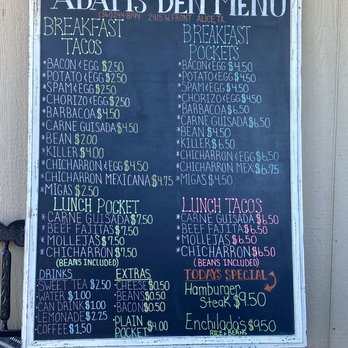 ADAM'S DEN MENU
(361)244-8194 2415 W. FRONT ALICE, TX
BREAKFAST
TACOS
*BACON & EGG $2.50
*POTATO & EGG $2.50
*SPAM & EGG $2.50
*CHORIZO & EGG $2.50
*BARBACOA $4.50
*CARNE GUISADA $4.50
*BEAN $2.00
*KILLER $4.00
*CHICHARRON & EGG $4.50
*CHICHARRON MEXICANA $4.75
*MIGAS $2.50
BREAKFAST
POCKETS
*BACON & EGG $4.50
*POTATO & EGG $4.50
*SPAM & EGG $4.50
*CHORIZO & EGG $4.50
*BARBACOA $6.50
*CARNE GUISADA $6.50
*BEAN $4.50
*KILLER $6.50
*CHICHARRON & EGG $6.50
*CHICHARRON MEX $6.75
*MIGAS $4.50
LUNCH POCKET
*CARNE GUISADA $7.50
*BEEF FAJITAS $7.50
*MOLLEJAS $7.50
*CHICHARRON $7.50
(BEANS INCLUDED)
LUNCH TACOS
*CARNE GUISADA $6.50
*BEEF FAJITA $6.50
*MOLLEJAS $6.50
*CHICHARRON $6.50
(BEANS INCLUDED)
DRINKS
SWEET TEA $2.50
WATER $1.00
CAN DRINK $1.00
LEMONADE $2.25
COFFEE $1.50
EXTRAS
*CHEESE $0.50
*BEANS $0.50
*BACON $0.50
*PLAIN
POCKET $4.00
TODAY'S SPECIAL
Hamburger
Steak $9.50
Enchilada's $9.50
RICE & BEANS